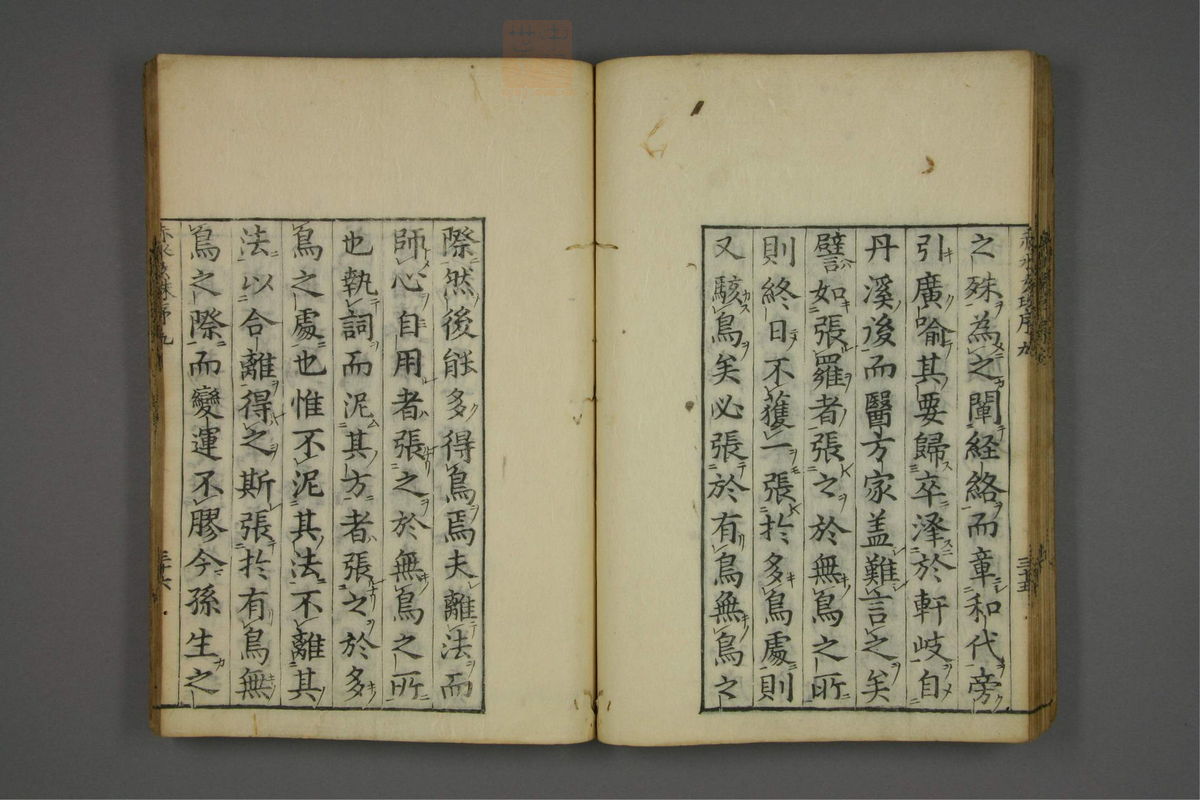 之殊為之闡経絡而章和代旁
引廣喻其要歸卒澤於軒岐自
丹溪後而醫方家盖難言之矣
譬如張羅者張之於無鳥之所
則終日不獲一張於多鳥處則
又駭鳥矣必張於有鳥無鳥之
際然後能多得鳥焉夫離法而
師心自用者張之於無鳥之所
也執詞而泥其方者張之於多
鳥之處也惟不泥其法不離其
法以合離得之斯張於有鳥無
鳥之際而變運不膠今孫生之